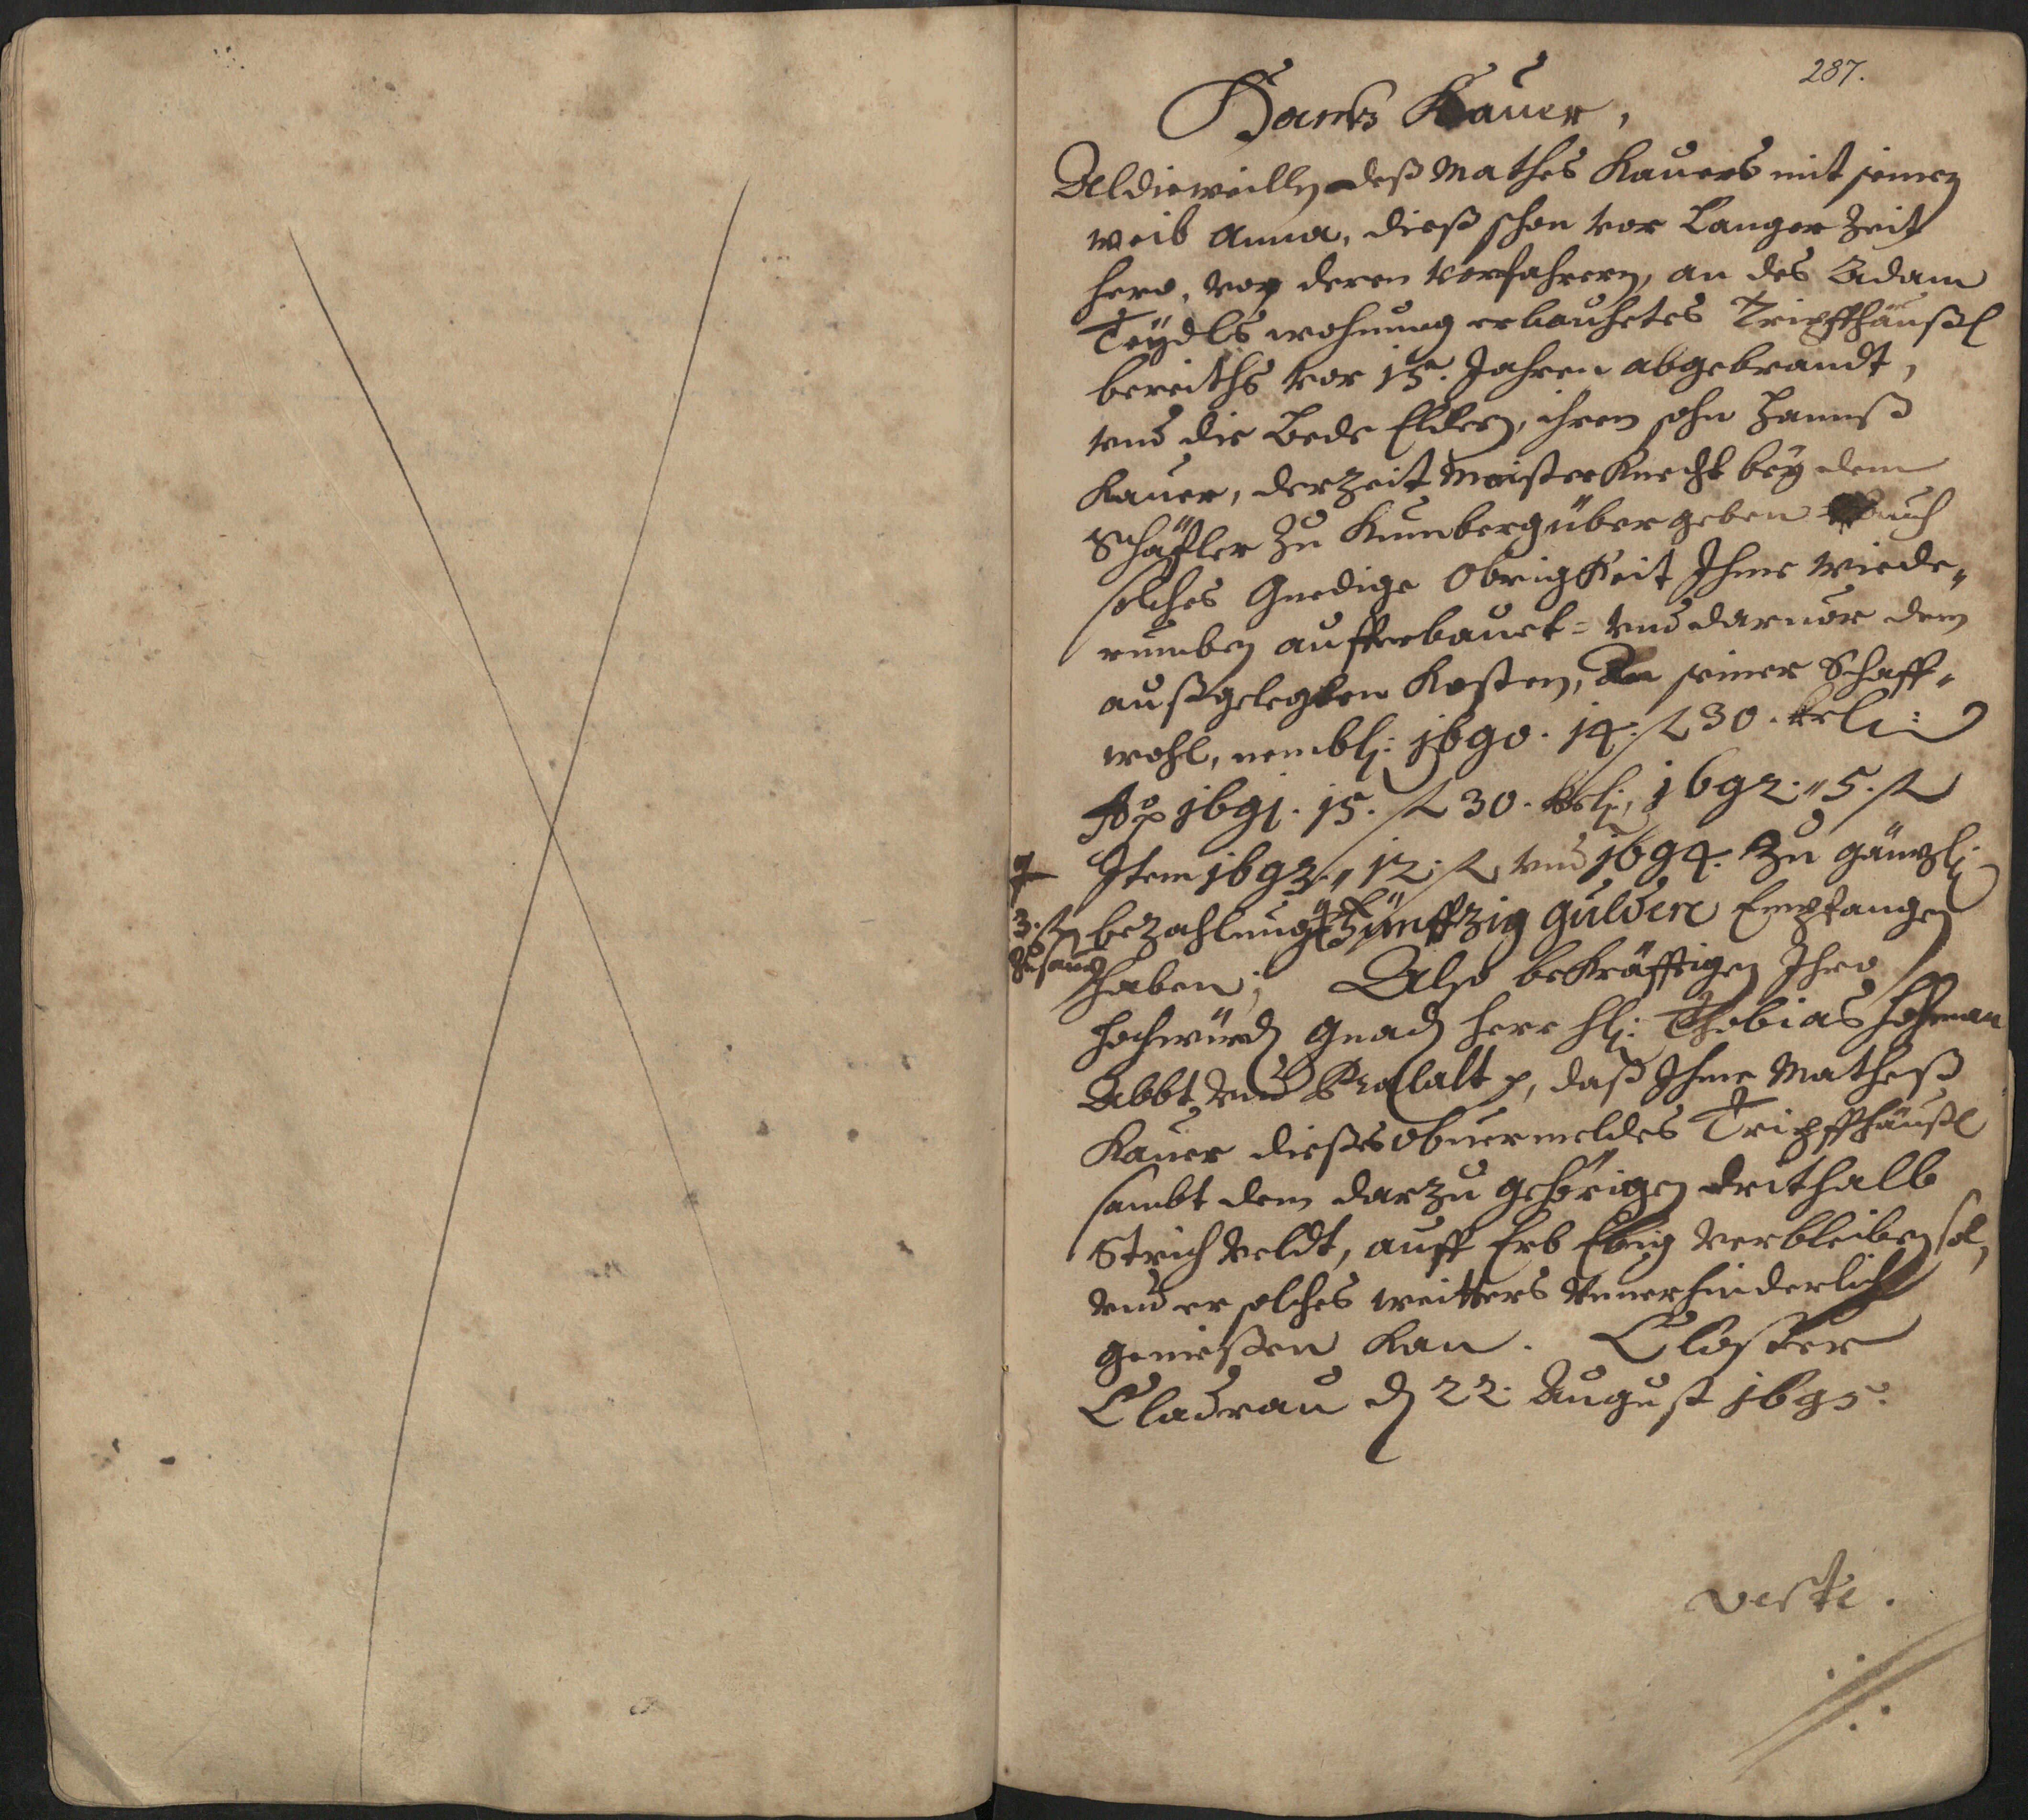 287.
Hanß Kauer,
Aldieweilln deß Mathes Kauers mit seinen
weib Anna, dieß schon vor langer Zeit
hero, von deren vorfahrern, an des Adam
Teÿdls wohnung erbauhetes Tripffhäußl
bereiths vor 15. Jahren abgebrandt,
vnd die bede Eldern, ihren sohn Hannß
Kauer, der Zeit Meister Knecht beÿ dem
Schäffler zu Kumberg übergeben auch
solches Gnedige Obrigkeit Ihme wiede„
rumben aufferbauet= vnd daruor dem
außgelegten Kosten, An seiner Schaff„
wohl, nembl: 1690. 14. fl 30. krl:
Ao 1691. 15. fl 30. krl: 1692.„ 5. fl
Item 1693.„ 12. fl vnd 1694. Zu gäntzl:
3. fl
Zusamen
bezahlung Fünffzig gulden Empfangen
haben; Also bekräfftigen Ihro
hochwürd gnad herr hl: Thobias Hofman
Abbt vnd Prälatt p, daß Ihme Matheß
Kauer dießes obuermeldes Tripffhäußl
sambt dem darzu gehörigen drithalb
Strich veldt, auff Erb Ebig verbleiben sol,
vnd er solches weitters vnuerhinderlich
genießen kan. Closter
Cladrau d 22. August 1695.
verte.